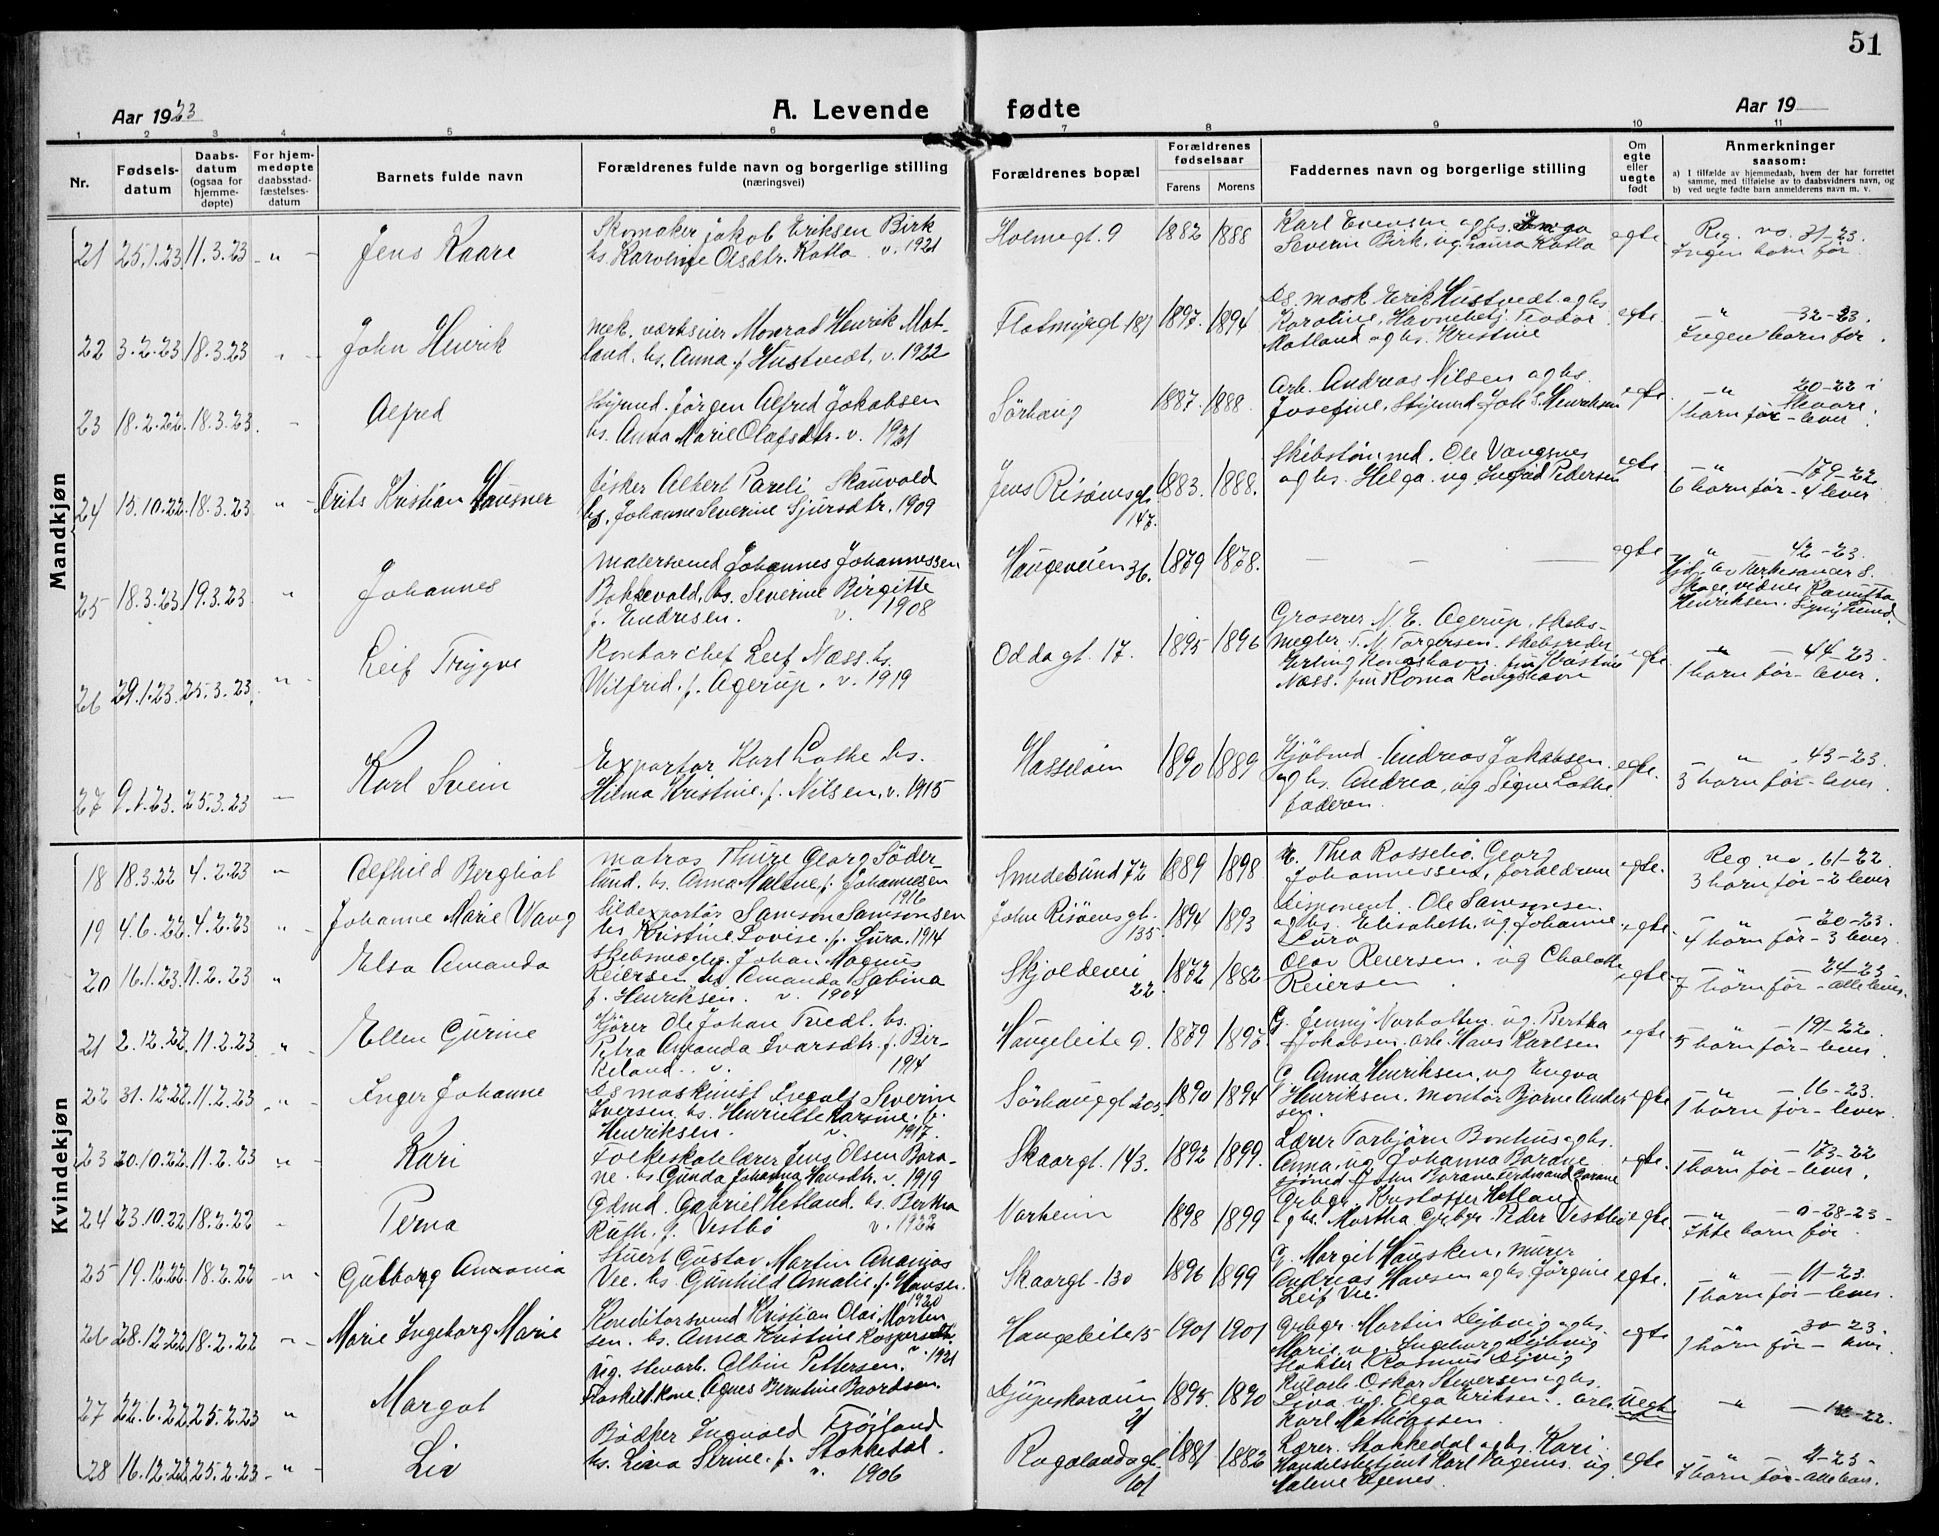 51
Aar 1923
A. Levende fødte
Aar 19
1 2 3 4 5 6 7 8 9 10 11
Nr.
Fødsels-
datum
Daabs-
datum
(ogsaa for
hjemme-
døpte)
For hjem-
medøpte
daabsstad-
fæstelses-
datum
Barnets fulde navn
Forældrenes fulde navn og borgerlige stilling
(næringsvei)
Forældrenes bopæl
Forældrenes
fødselsaar
Farens Morens
Faddernes navn og borgerlige stilling
Om
egte
eller
uegte
født
Anmerkninger
saasom:
a) I tilfælde av hjemmedaab, hvem der har forrettet
samme, med tilføielse av to daabsvidners navn, og
b) ved uegte fødte barn anmelderens navn m. v.
Mandkjøn
21 25.1.23 11.3.23 - " - Jens Kaare
Skomaker Jakob Eriksen Birk
hs. Karoline Olsdtr. Katla v. 1921
Holmegt. 9 1882 1888
Karl Evensen og hs. Inga
Severin Birk, og Laura Katla
egte
Reg. no. 31-23.
Ingen barn før.
22 3.2.23 18.3.23 " - John Henrik
mek. værkseier Monrad Henrik Mat-
land. hs. Anna f. Hustvedt, v. 1922
Flotmyrgt 181 1897. 1894
Ds. mask. Erik Hustvedt og hs.
Karoline, Havnebetj. Teodor
Matland og hs. Kristine
egte.
- " - 32-23.
Ingen barn før.
23 18.2.22. 18.3.23. - Alfred
Styrmd. Jørgen Alfred Jakobsen
hs. Anna Marie Olafsdtr. v. 1921
Sørhaug 1887. 1888.
Arb. Andreas Nilsen og hs.
Josefine, Styrmd. Joh. S. Henriksen
egte.
- " - 20-22 i
Skaare.
1 barn før - lever.
24 15.10.22. 18.3.23 " - Frits Kristian Hausner
Fisker Albert Pareli Skauvold
hs. Johanne Severine Sjursdtr. 1909
Jens Risøensgt.
147. 1883. 1888.
Skibstømmd. Ole Vangsnes
og hs. Helga. og Ingrid Pedersen
egte
- " - 179-22
6 barn før - 4 lever
25 18.3.23 19.3.23 " Johannes
Malersvend Johannes Johannessen
Bokkevold, hs. Severine Birgitte
f. Endresen. v. 1908
Haugeveien 36. 1879 1878.
- - -
egte
- " - 42-23.
Henriksen.
26 29.1.23 25.3.23. " Leif Trygve
Kontorchef Leif Næss. hs.
Wilfrid. f. Agerup. v. 1919
Oddagt. 17. 1895 1896
Groserer N. E. Agerup, skibs-
megler T. M. Torgersen. skibsreder
Erling Kongshavn. frk Kristine
Næss. frk Roma Kongshavn
egte.
- " - 44-23.
1 barn før - lever.
27 9.1.23. 25.3.23 - Karl Svein
Exportør Karl Lothe hs.
Hilma Kristine. f. Nilsen. v. 1915
Hasseløen 1890 1889
Kjøbmd. Andreas Jakobsen.
og hs. Andrea, og Signe Lothe
faderen.
egte.
- " - 43-23.
3 barn før - lever.
Kvindekjøn
18 18.3.22 4.2.23 " Alfhild Bergliot
Matros Thure Georg Söder-
lund. hs. Anna Malene f. Johannesen
1916
Smedesund 72 1889 1898
Thea Rossebø. Georg
Johannessen, forældrene
egte.
Reg. no. 61-22.
3 barn før - 2 lever
19 4.6.22 4.2.23 " - Johanne Marie Wang
Sildexportør Samson Samsonsen
hs. Kristine Lovise. f. Lura. 1914
John Risøensgt.
135 1894 1893
Disponent. Ole Samsonsen
og hs. Elisabeth. og Johanne
Lura
egte.
- " - 20-23.
4 barn før - 3 lever.
20 16.1.23 11.2.23 " Elsa Amanda
Skibsmægler. Johan Magnus
Reiersen hs. Amanda Sabina
f. Henriksen. v. 1904
Skjoldevei
22. 1872 1882
Olav Reiersen. og Chalotte
Reiersen
egte
- " - 24-23
7 barn før - alle lever.
21 2.12.22 11.2.23 " - Ellen Gurine
Kjører Ole Johan Tvedt. hs.
Petra Amanda Ivarsdtr. f. Bir-
keland. v. 1914
Haugeleite 9. 1879 1893
G. Jenny Norbotten. og Bertha
Jakobsen. arb. Hans Karlsen
egte.
- " - 191-22.
5 barn før - lever.
22 31.12.22 11.2.23 - " - Inger Johanne
Ds maskinist Ingvald Severin
Iversen hs. Henriette Karsine. f.
Henriksen. v. 1917.
Sørhauggt 203 1890 1894
G Anna Henriksen. og Yngva
Henriksen. Montør Bjarne Ander
sen.
egte
- " - 16-23.
1 barn før - lever.
23 20.10.22 11.2.23 " - Kari
Folkeskolelærer Jens Olsen Bora-
ne. hs Gunda Johanna Hansdtr. v. 1919
Skaargt. 143. 1892 1899.
Lærer Torbjørn Bonhus og hs.
Anna, og Johanna Borane
John Borane Ferdinand Borane
egte.
- " - 183-22
1 barn før - lever.
24 23.10.22 18.2.22 - Perna
Gdmd. Gabriel Hetland. hs. Bertha
Ruth. f. Vestbø v. 1922
Norheim 1898 1899
Grbgr. Kristoffer Hetland
og hs. Martha. Grbgr. Peder Vestbø
egte
- " - 0-28-23-
Ikke barn før.
25 19.12.22 18.2.22 - " - Gulborg Ansonia
Stuert Gustav Martin Ananias
Vee. hs. Gunhild Amalie. f. Hansen.
1920
Skaargt. 130 1896 1899
G. Margit Hausken, murer
Andreas Hansen og hs. Jørgine
Leif Vee.
egte.
- " - 11-23.
1 barn før - lever.
26 28.12.22 18.2.22 " - Marie Ingeborg Marie
Konditorsvend Kristian Olai Morten
sen. hs. Anna Kristine Kaspersdtr.
v. 1921
Haugeleite 15 1901 1901
Grbgr. Martin Dybvig og hs.
Marie. og Ingeborg Dybvig
Slakter Rasmus Dybvig
egte
- " - 30-23.
1 barn før - lever.
27 22.6.22 25.2.23 " Margot
Albin Pettersen.
Agnes Berntine Baardsen.
21 1895. 1890
Oskar Siversen og hs.
Lina og Olga Eriksen. arb.
Karl Mathiassen
Uegte
- " - 122-22.
28 16.12.22 25.2.23 - " - Liv
Bødker Ingvald Frøiland
hs. Lina Serine. f. Stokkedal.
v. 1906
Rogalandsgt.
101 1881 1882
Lærer. Stokkedal og hs. Kari.
Handelsbetjent Karl Vagenes. og
Malene Vagenes.
egte
- " - 4-23-
7 barn før - alle lever.